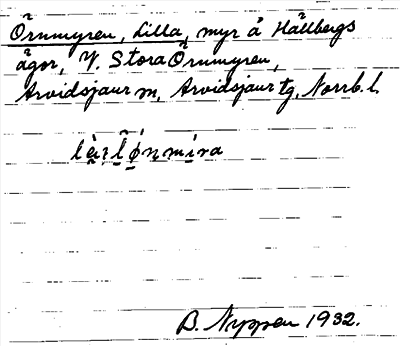 Örnmyren, Lilla, myr å Hällbergs
ägor, V. Stora Örnmyren,
Arvidsjaur m, Arvidsjaur tg, Norrb. l.
B. Nyppen 1932.